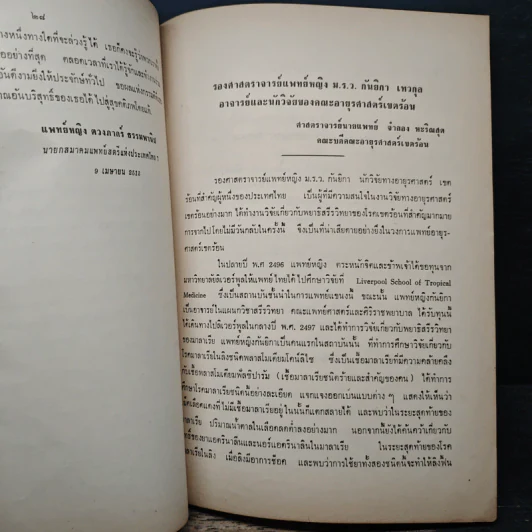 ๒๘
างหนึ่งทางใดที่จะล่วงรู้ได้ เธอก็คงจะรู้ว่าพวกเรา
อย่างที่สุด ตลอดเวลาที่เราได้รู้จักและทำงาน
อันดีงามยิ่งให้ประจักษ์ทั่วไป ขอผลแห่งความดี
าณอันบริสุทธิ์ของเธอได้ไปสู่สุขคติภพโดยแท้.
แพทย์หญิง ดวงภากร์ ธรรมพานิช
นายกสมาคมแพทย์สตรีแห่งประเทศไทย ฯ
๑ เมษายน
รองศาสตราจารย์แพทย์หญิง ม.ร.ว. กันยิกา เทวกุล
อาจารย์และนักวิจัยของคณะอายุรศาสตร์เขตร้อน
ศาสตราจารย์นายแพทย์ จำลอง หะริณสุต
คณะบดีคณะอายุรศาสตร์เขตร้อน
รองศาสตราจารย์แพทย์หญิง ม.ร.ว. กันยิกา นักวิจัยทางอายุรศาสตร์ เขต
ร้อนที่สำคัญผู้หนึ่งของประเทศไทย เป็นผู้ที่มีความสนใจในงานวิจัยทางอายุรศาสตร์
เขตร้อนอย่างมาก ได้ทำงานวิจัยเกี่ยวกับพยาธิสรีรวิทยาของโรคเขตร้อนที่สำคัญมากมาย
การจากไปโดยไม่มีวันกลับในครั้งนี้ จึงเป็นที่น่าเสียดายอย่างยิ่งในวงการแพทย์อายุร-
ศาสตร์เขตร้อน
ในปลายปี พ.ศ 2496 แพทย์หญิง ตระหนักจิตและข้าพเจ้าได้ขอทุนจาก
มหาวิทยาลัยลิเวอร์พูลให้แพทย์ไทยได้ไปศึกษาวิจัยที่ Liverpool School of Tropical
Medicine ซึ่งเป็นสถาบันชั้นนำในการแพทย์แขนงนี้ ขณะนั้น แพทย์หญิงกันยิกา
เป็นอาจารย์ในแผนกวิชาสรีรวิทยา คณะแพทย์ศาสตร์และศิริราชพยาบาล ได้รับทุนนี้
ได้เดินทางไปลิเวอร์พูลในกลางปี พ.ศ. 2497 และได้ทำการวิจัยเกี่ยวกับพยาธิสรีรวิทยา
ของมาลาเรีย แพทย์หญิงกันยิกาเป็นคนแรกในสถาบันนั้น ที่ทำการศึกษาวิจัยเกี่ยวกับ
โรคมาลาเรียในลิงชนิดพลาสโมเดียมโคน์ลิไซ ซึ่งเป็นเชื้อมาลาเรียที่มีความคล้ายคลึง
กับเชื้อพลาสโมเดียมฟัลซิปารัม (เชื้อมาลาเรียชนิดร้ายและสำคัญของคน) ได้ทำการ
ศึกษาโรคมาลาเรียชนิดนี้อย่างละเอียด แยกแจงออกเป็นแบบต่าง ๆ แสดงให้เห็นว่า
เม็ดเลือดแดงที่ไม่มีเชื้อมาลาเรียอยู่ในนั้นก็แตกสลายได้ และพบว่าในระยะสุดท้ายของ
มาลาเรีย ปริมาณน้ำตาลในเลือดลดต่ำลงอย่างมาก นอกจากนี้ยังได้ค้นคว้าเกี่ยวกับ
ของยาแอดรีนาลีนและนอร์แอดรีนาลีนในมาลาเรีย ในระยะสุดท้ายของโรค
มาลาเรียในลิง เมื่อลิงมีอาการช็อค และพบว่าการใช้ยาทั้งสองชนิดนี้จะทำให้ลิงฟื้น